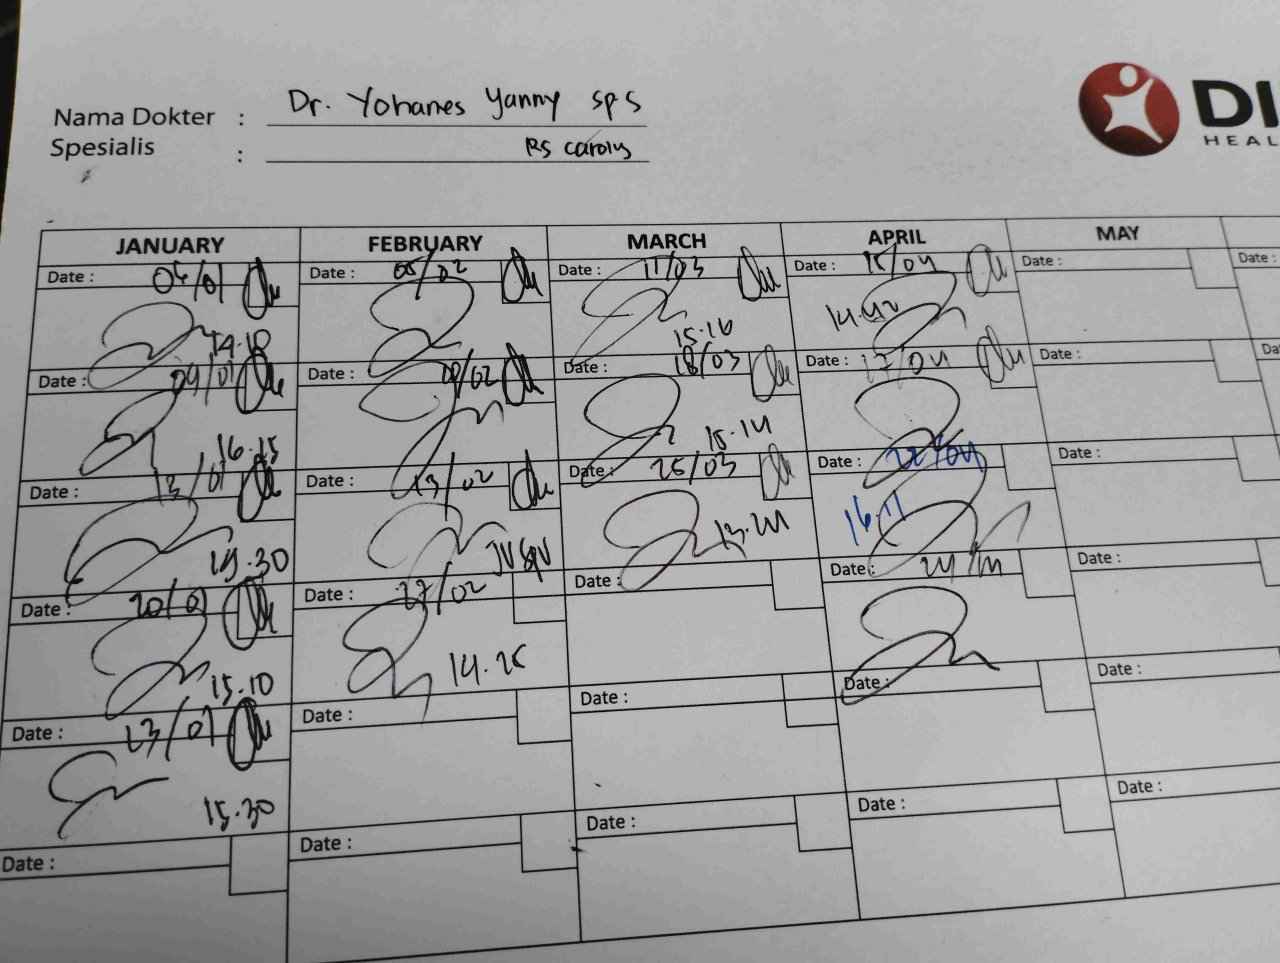 Nama Dokter : Dr. Yohanes Yanny sps
Spesialis : RS carolus
DI
HEAL
JANUARY FEBRUARY MARCH APRIL MAY
Date : 06/01 Date : 05/02 Date : 11/03 Date : 15/04 Date : Date :
14.10 15.16 14.42
Date : 09/01 Date : Date : 18/03 Date : 17/04 Date : Da
16.15 15.14
Date : 13/01 Date : 13/02 Date : 25/03 Date : 22/04 Date :
15.30 JV SPV 13.24 16.11
Date : 20/01 Date : 27/02 Date : Date : Date :
15.10 14.25
Date : 23/01 Date : Date : Date : Date :
15.30
Date : Date : Date : Date : Date :